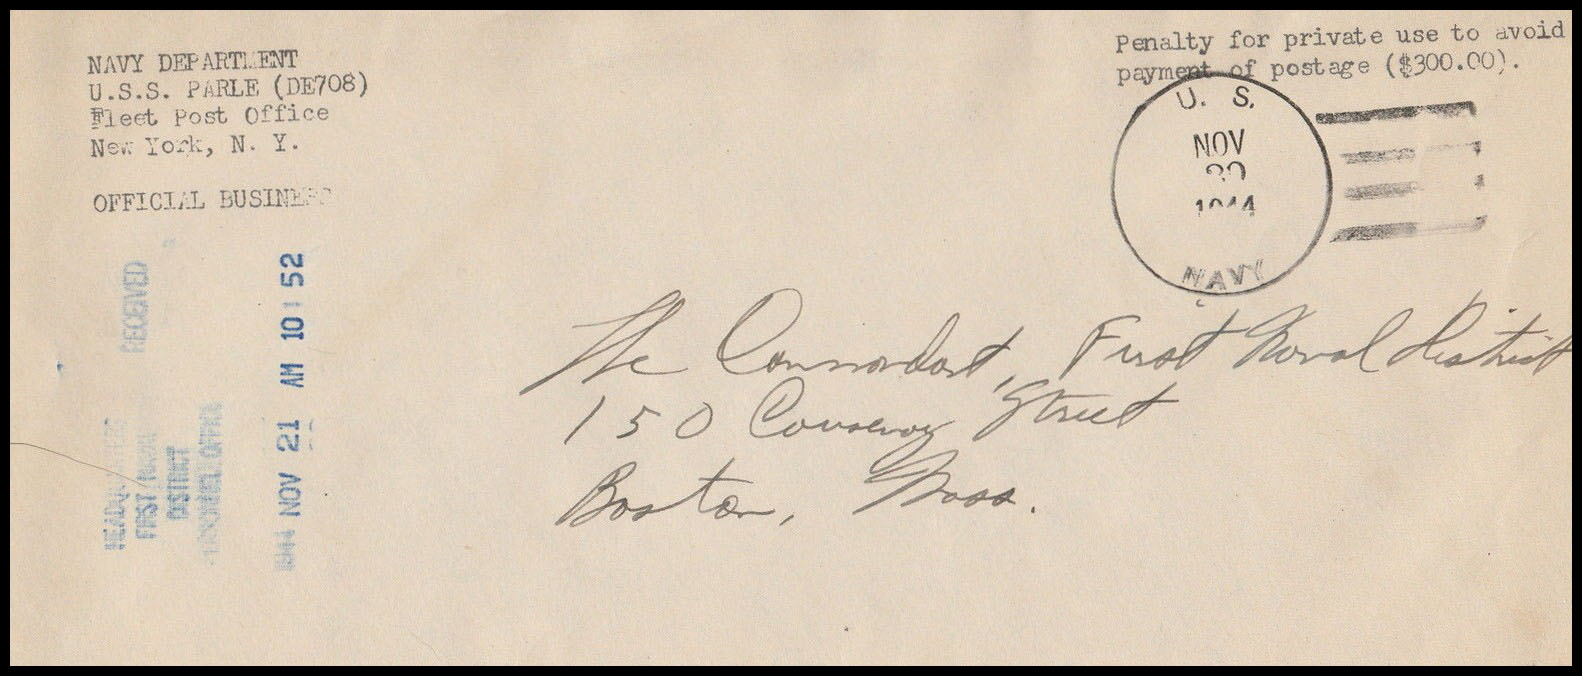 NAVY DEPARTMENT
U.S.S. PARLE (DE708)
Fleet Post Office
New York, N. Y.
OFFICIAL BUSINESS
Penalty for private use to avoid
payment of postage ($300.00).
U. S.
NOV
20
1944
NAVY
The Commandant, First Naval District
150 Causeway Street
Boston, Mass.
RECEIVED
1944 NOV 21 AM 10 52
HEADQUARTERS
FIRST NAVAL
DISTRICT
PERSONNEL OFFICE